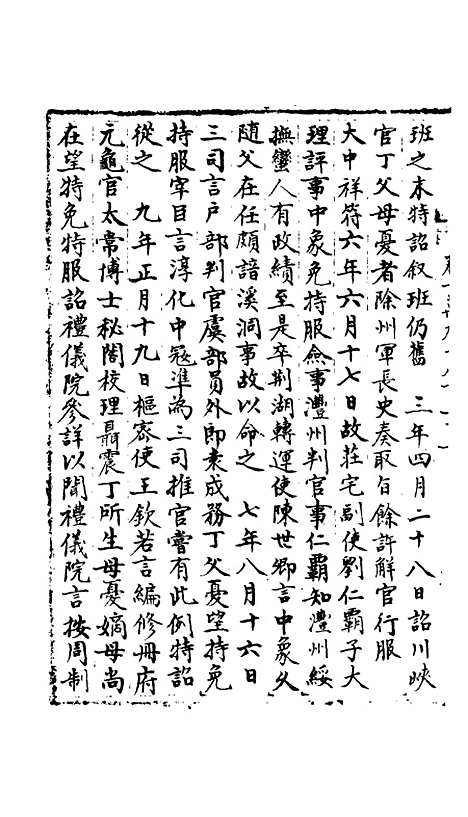 班之末特詔叙班仍舊　三年四月二十八日詔川峽
官丁父母憂者除州軍長史奏取旨餘許解官行服
大中祥符六年六月十七日故莊宅副使劉仁霸子大
理評事中象免持服僉事澧州判官事仁霸知澧州綏
撫蠻人有政績至是卒荆湖轉運使陳世卿言中象久
隨父在任頗諳溪洞事故以命之　七年八月十六日
三司言戶部判官虞部員外郎袁成務丁父憂望持免
持服宰臣言淳化中冦準為三司推官嘗有此例特詔
從之　九年正月十九日樞密使王欽若言編修册府
元龜官太常博士秘閣校理聶震丁所生母憂嫡母尚
在望特免持服詔禮儀院參詳以聞禮儀院言按周制